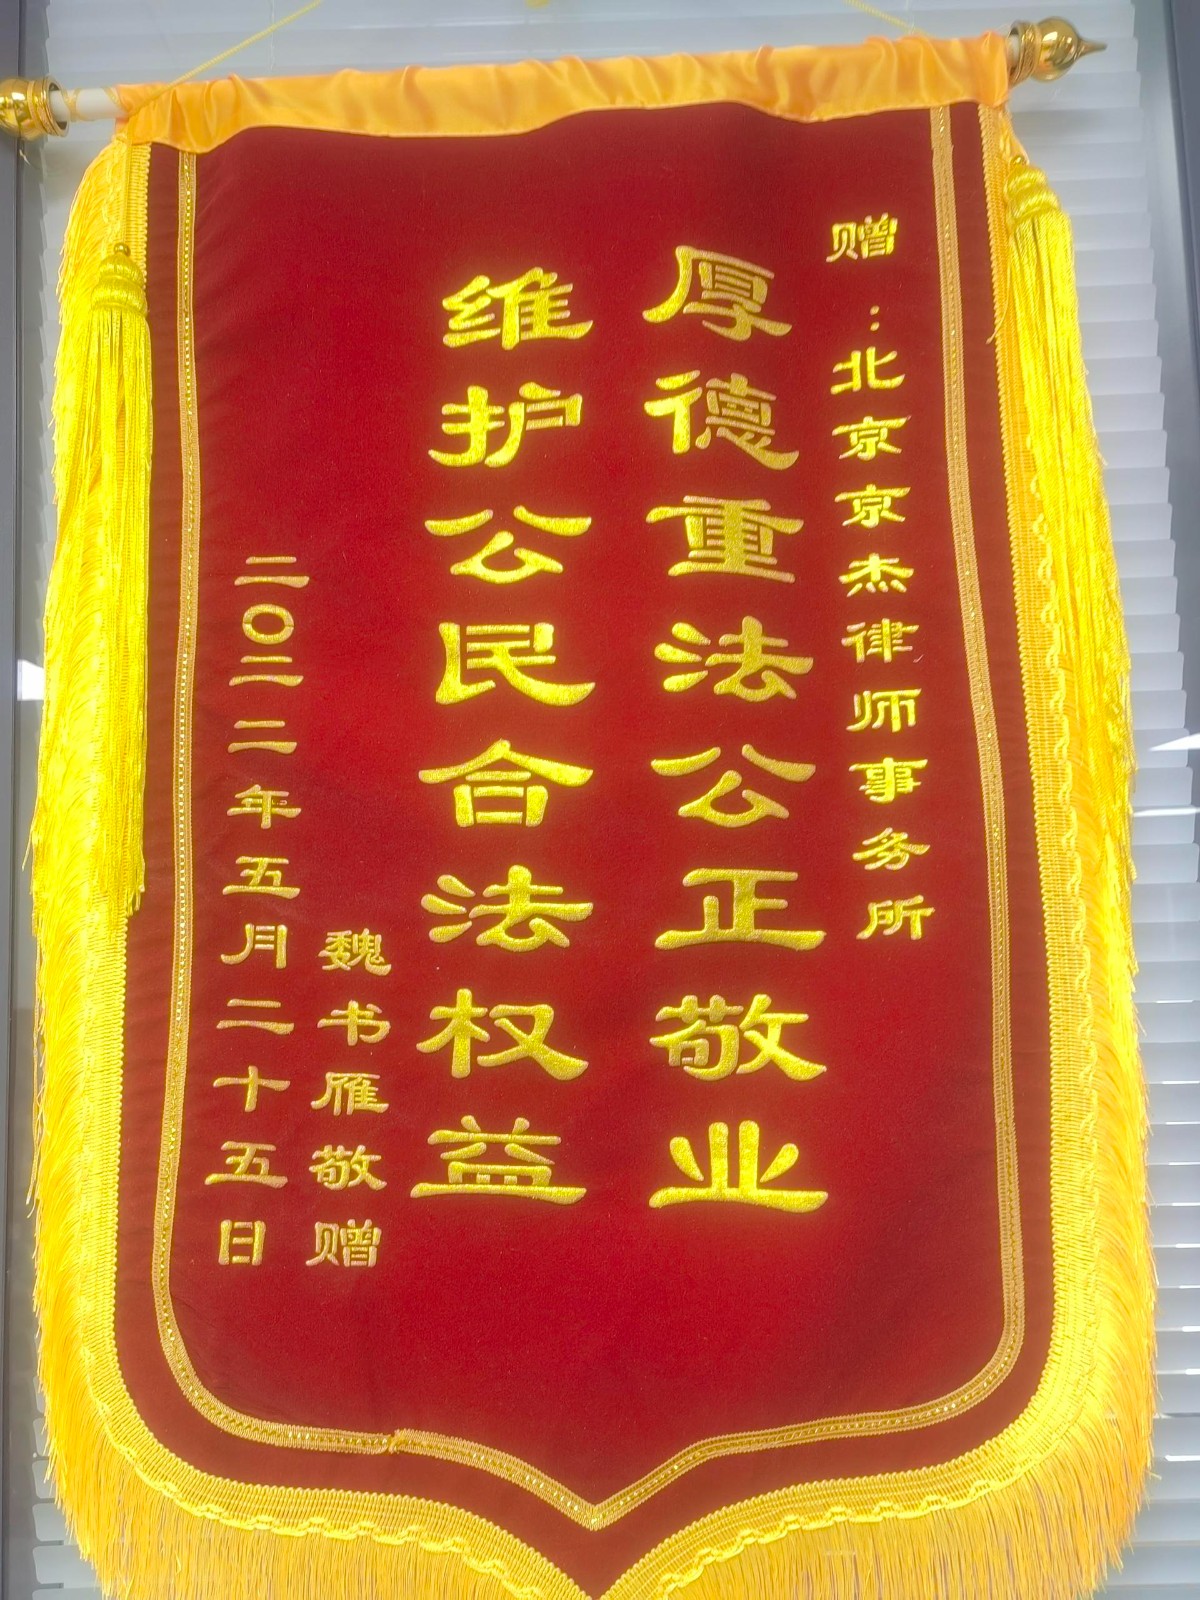 赠：北京京杰律师事务所
厚德重法公正敬业
维护公民合法权益
魏书雁敬赠
二〇二二年五月二十五日